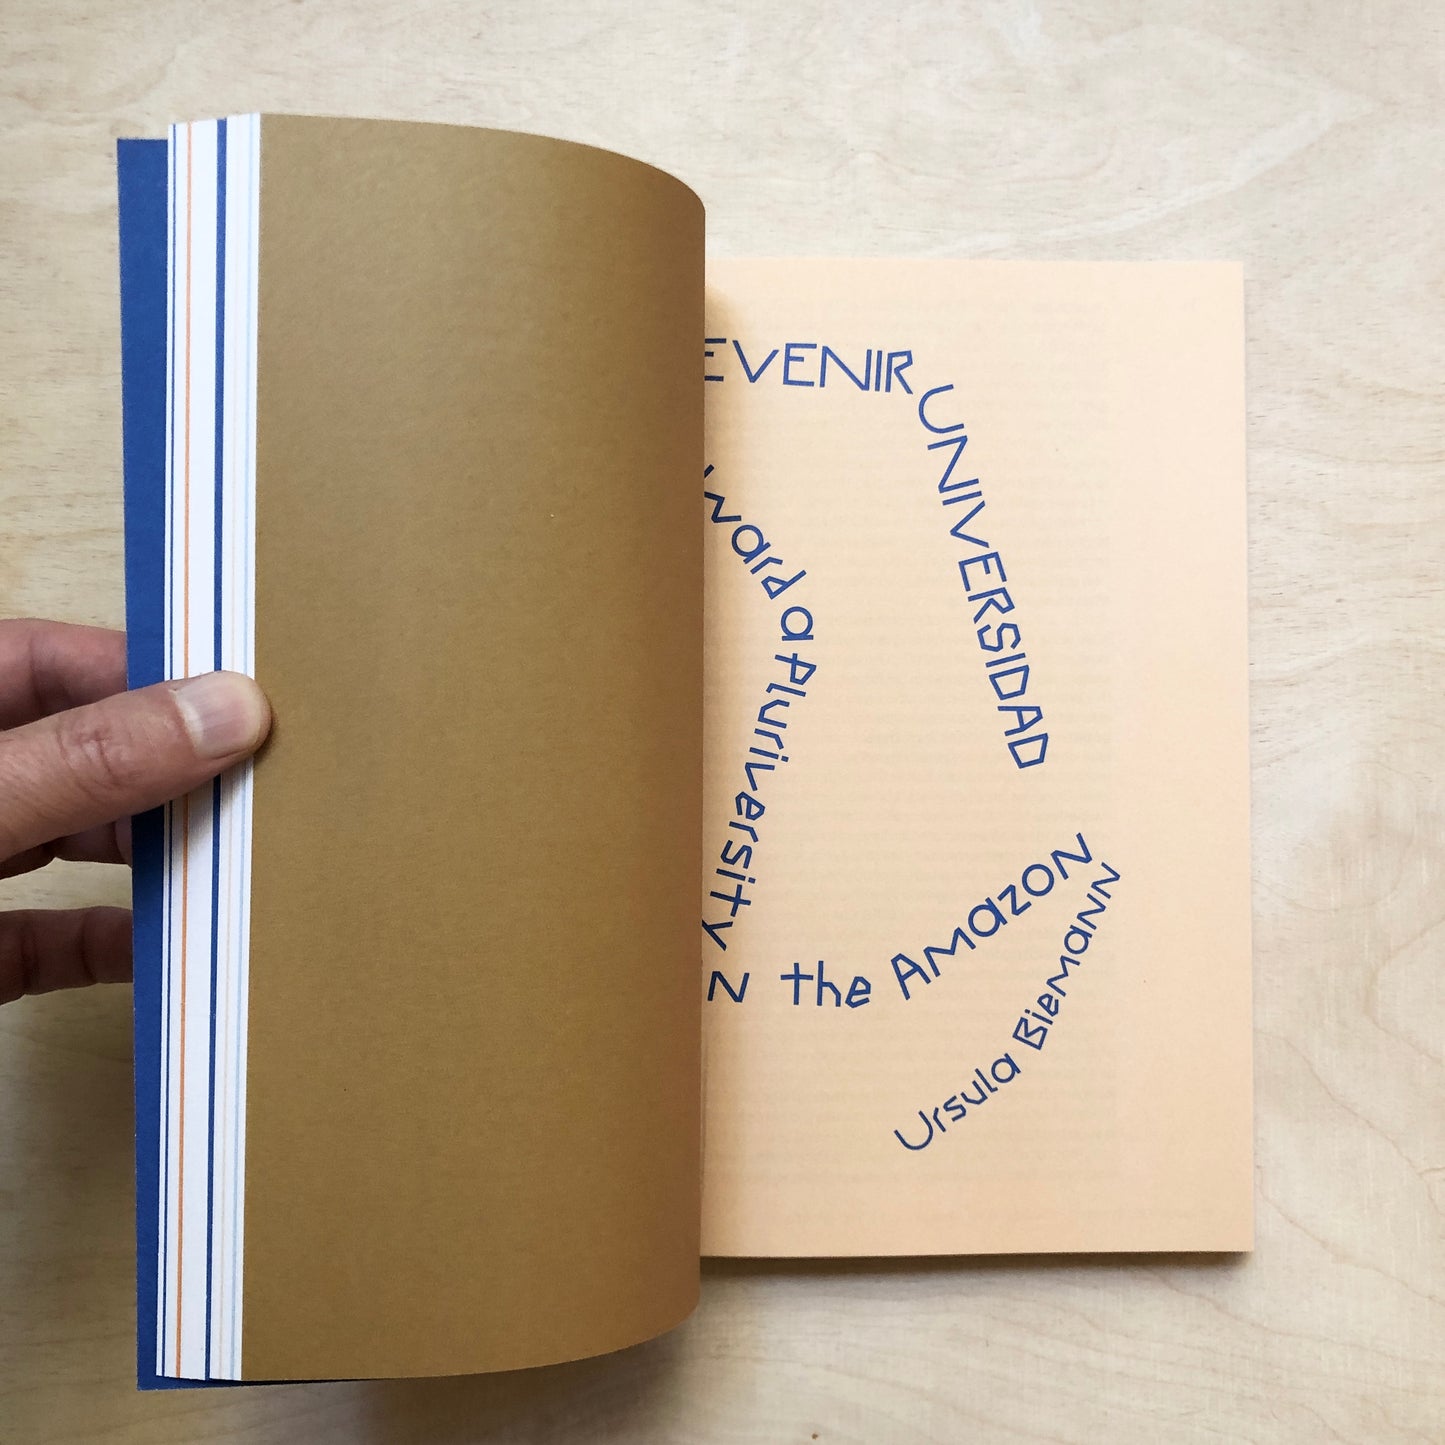 EVENIR
UNIVERSIDAD
ward a Pluriversity
the Amazon
Ursula Biemann